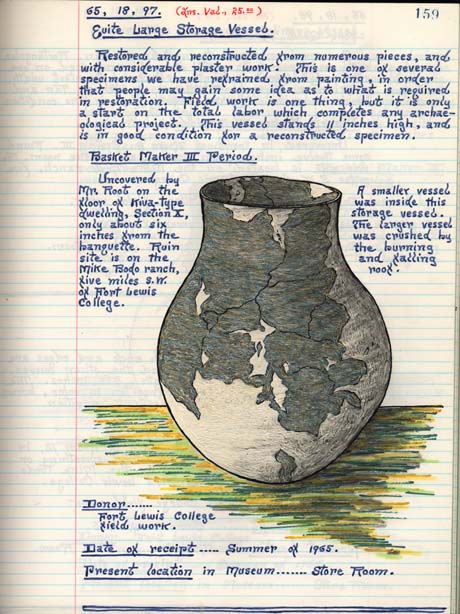 65, 18, 97. (Ins. Val., 25.00) 159
Quite Large Storage Vessel.
Restored and reconstructed from numerous pieces, and
with considerable plaster work. This is one of several
specimens we have refrained from painting, in order
that people may gain some idea as to what is required
in restoration. Field work is one thing, but it is only
a start on the total labor which completes any archae-
ological project. This vessel stands 11 inches high, and
is in good condition for a reconstructed specimen.
Basket Maker III Period.
Uncovered by
Mr. Root on the
floor of Kiva-type
dwelling, Section X,
only about six
inches from the
banquette. Ruin
site is on the
Mike Bodo ranch,
five miles S.W.
of Fort Lewis
College.
A smaller vessel
was inside this
storage vessel.
The larger vessel
was crushed by
the burning
and falling
roof.
Donor.......
Fort Lewis College
field work.
Date of receipt ..... Summer of 1965.
Present location in Museum....... Store Room.